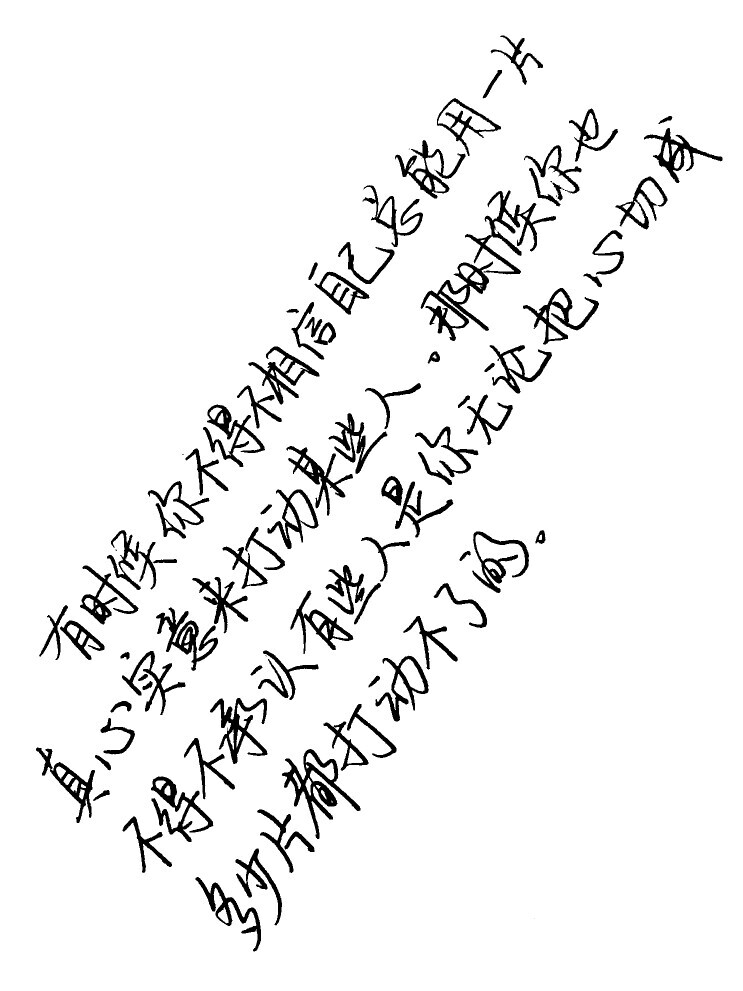 有时候你不得不相信自己总能用一片
真心实意来打动某些人。那时候你也
不得不承认有些人是你无论把心切成
多少片都打动不了的.